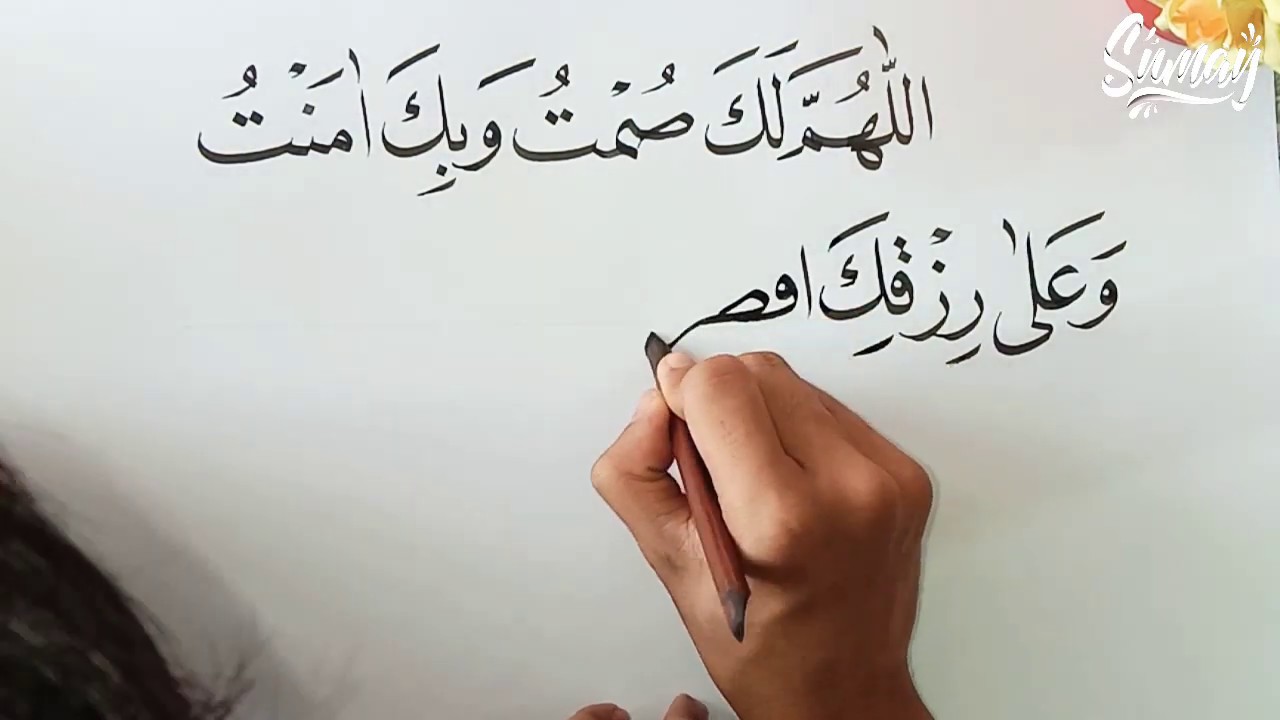 اللّٰهُمَّ لَكَ صُمْتُ وَبِكَ اٰمَنْتُ
وَعَلىٰ رِزْقِكَ افص
Sumay